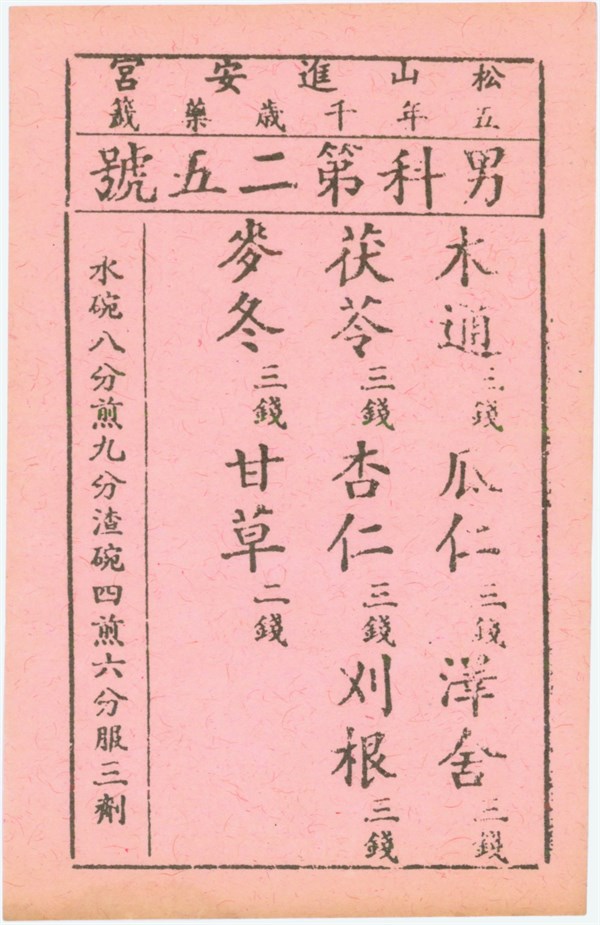 松山進安宮
五年千歲藥籤
男科第二五號
木通三錢 瓜仁三錢 澤舍三錢
茯苓三錢 杏仁三錢 刈根三錢
麥冬三錢 甘草二錢
水碗八分煎九分渣碗四煎六分服三劑